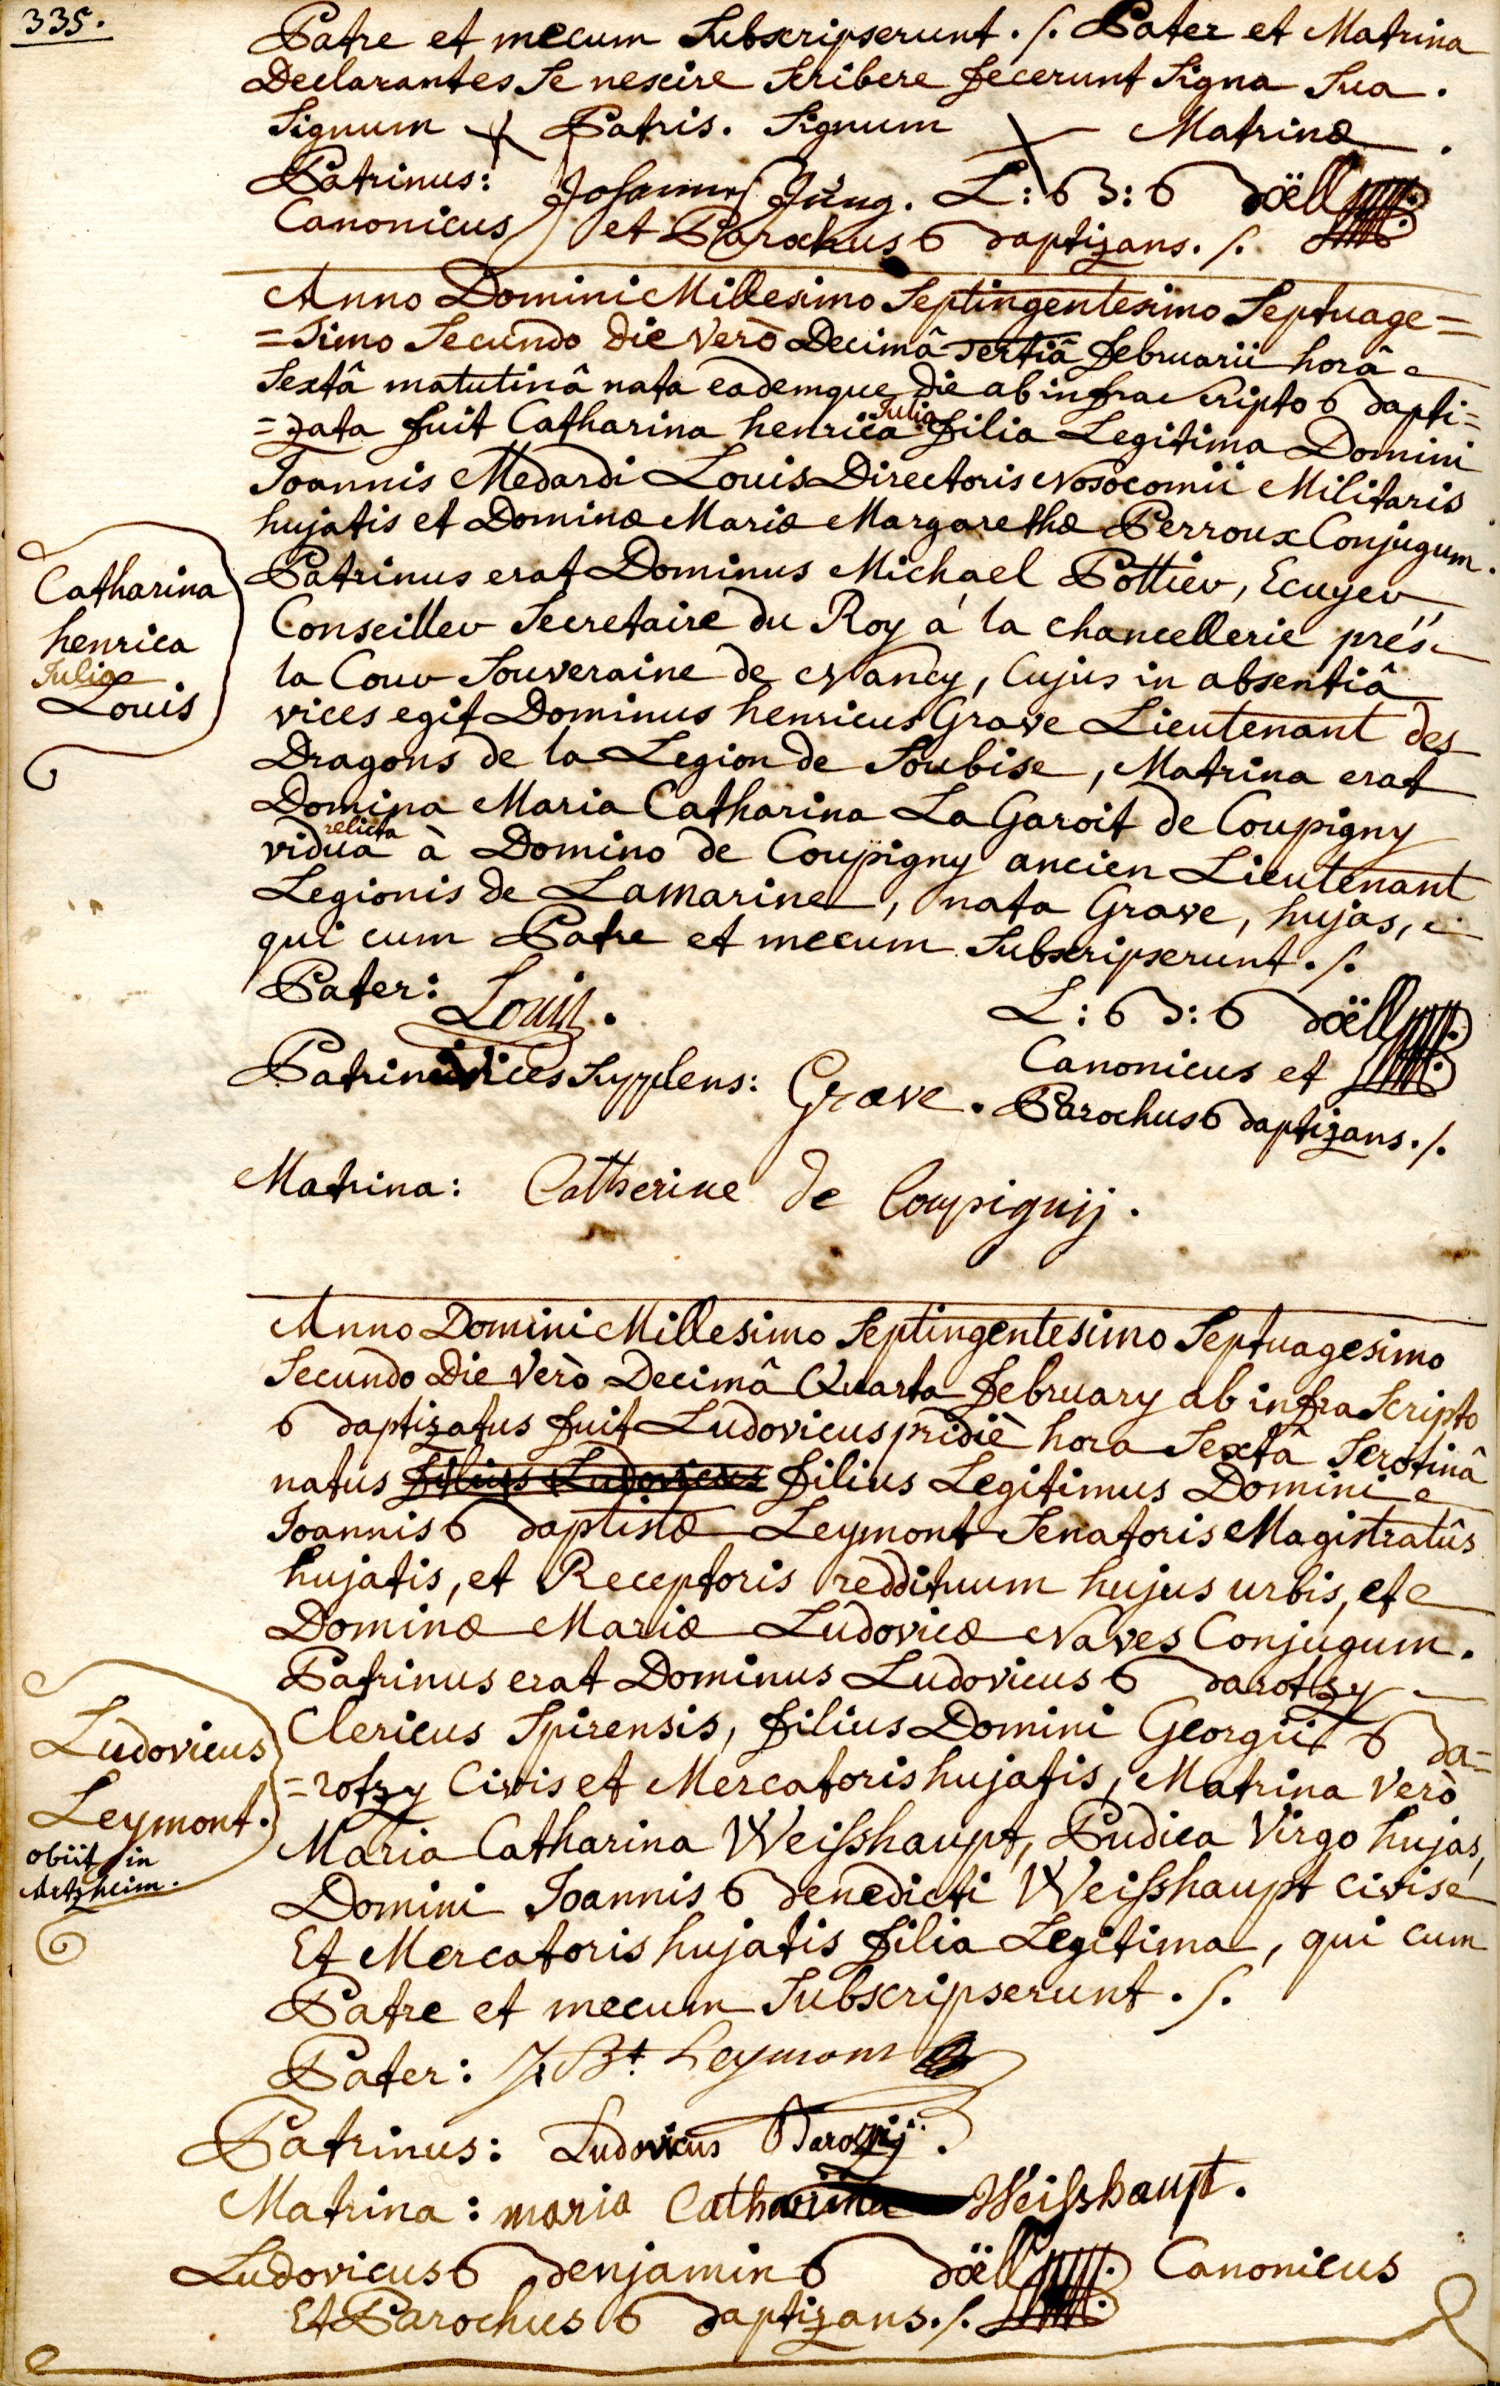 335.
Patre et mecum Subscripserunt ./. Pater et Matrina
Declarantes Se nescire Scribere fecerunt Signa Sua.
Signum Patris. Signum Matrinæ.
Patrinus: Johannes Jüng. L: B: Böell
Canonicus et Parochus Baptizans ./.
Anno Domini Millesimo Septingentesimo Septuage=
=simo Secundo die verò Decimâ Tertiâ februarii horâ
Sextâ matutinâ nata eademque die ab infra scripto Bapti=
=zata fuit Catharina henrica Julia filia Legitima Domini
Joannis Medardi Louis Directoris Nosocomii Militaris
hujatis et Dominæ Mariæ Margarethæ Perroux Conjugum.
Patrinus erat Dominus Michael Pottier, Ecuyer,
Conseiller Secretaire du Roy á la chancellerie prés
la Cour Souveraine de Nancy, Cujus in absentiâ
vices egit Dominus henricus Grave Lieutenant des
Dragons de la Legion de Soubise, Matrina erat
Domina Maria Catharina La Garoit de Coupigny
vidua relicta à Domino de Coupigny ancien Lieutenant
Legionis de Lamarine, nata Grave, hujas,
qui cum Patre et mecum Subscripserunt ./.
Catharina
henrica
Julia
Louis
Pater: Louis.
L: B: Böell
Canonicus et
Parochus Baptizans ./.
Patrini vices Supplens: Grave.
Matrina: Catherine de Coupignij.
Anno Domini Millesimo Septingentesimo Septuagesimo
Secundo Die verò Decimâ Quarta February ab infra Scripto
Baptizatus fuit Ludovicus pridiè hora Sextâ Serotinâ
natus filius Ludovicus filius Legitimus Domini
Joannis Baptistæ Leymont Senatoris Magistratûs
hujatis, et Receptoris reddituum hujus urbis, et
Dominæ Mariæ Ludovicæ Naves Conjugum.
Patrinus erat Dominus Ludovicus Barotzy
Clericus Spirensis, filius Domini Georgii Ba=
=rotzy Civis et Mercatoris hujatis, Matrina verò
Maria Catharina Weisshaupt, Pudica Virgo hujas,
Domini Joannis Benedicti Weisshaupt civis
Et Mercatoris hujatis filia Legitima, qui cum
Patre et mecum Subscripserunt ./.
Ludovicus
Leymont.
obiit in
Artzheim.
Pater: J. Bt. Leymont
Patrinus: Ludovicus Barozij.
Matrina: maria Catharina Weisshaupt.
Ludovicus Benjamin Böell Canonicus
Et Parochus Baptizans ./.